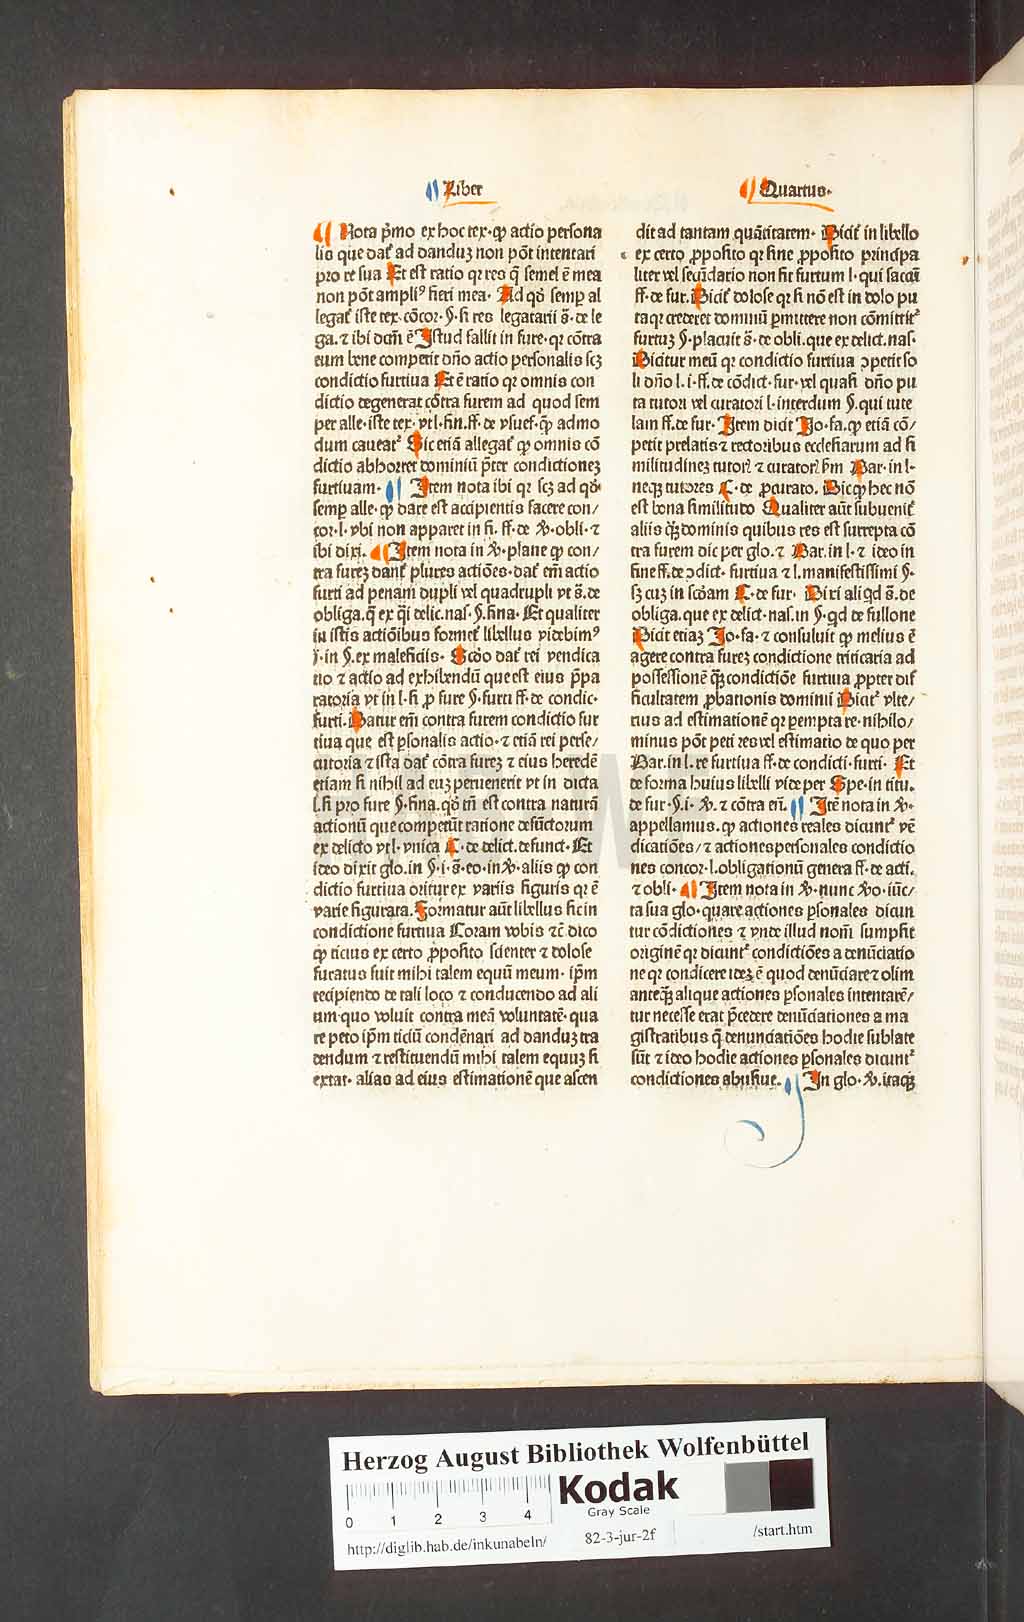 Liber
Quartus.
Nota p̄mo ex hoc tex· qꝫ actio persona
lis que daꝉ ad danduꝫ non pōt intentari
pro re sua Et est ratio qꝛ res q̄ semel ē mea
non pōt ampliꝰ fieri mea· Ad qđ semꝑ al
legaꝉ iste tex· cōcor· §· si res legatarii s̄· de le
ga· ⁊ ibi dcm̄ ē Istud fallit in fure· qꝛ cōtra
eum bene competit dn̄o actio personalis sꝫ
condictio furtiua Et ē ratio qꝛ omnis con
dictio degenerat cōtra furem ad quod sem
per alle· iste tex· ꝟl· l· fin. ff. de vsuf· qꝫ admo
dum caueatꝛ Sic etiā allegaꝉ qꝫ omnis cō
dictio abhorret dominiū p̄ter condictioneꝫ
furtiuam· Item nota ibi qꝛ sꝫ ad qđ·
semꝑ alle· qꝫ dare est accipientis facere con/
cor· l· vbi non apparet in fi. ff. de ꝟ· obli· ⁊
ibi dixi. Item nota in ꝟ· plane qꝫ con/
tra fureꝫ danꝉ plures actiōes· daꝉ em̄ actio
furti ad penam dupli vel quadrupli vt s̄· de
obliga· q̄ ex q̄i delic· nas· §· fina· Et qualiter
in istis actiōibus formeꝉ libellus videbimꝰ
ī· in §· ex maleficiis· Scđo daꝉ rei vendica
tio ⁊ actio ad exhibendū que est eius p̄pa
ratoria vt in l· si ꝓ fure §· furti ff· de condic·
furti· Datur em̄ contra furem condictio fur
tiua que est ꝑsonalis actio· ⁊ etiā rei perse/
cutoria ⁊ ista daꝉ cōtra fureꝫ ⁊ eius heredē
etiam si nihil ad euꝫ peruenerit vt in dicta
l· si pro fure §· fina· qđ tm̄ est contra naturā
actionū que competūt ratione defūctorum
ex delicto vt l· vnica C· de delict· defunct· Et
ideo dixit glo. in §· i· s̄· eo· in ꝟ· aliis qꝫ con
dictio furtiua oritur ex variis figuris qꝛ ē
varie figurata. Formatur aūt libellus sic in
condictione furtiua Coram vobis ⁊c̄ dico
qꝫ ticius ex certo ꝓposito scienter ⁊ dolose
furatus fuit mihi talem equū meum· ip̄m
recipiendo de tali loco ⁊ conducendo ad ali
um· quo voluit contra meā voluntatē· qua
re peto ip̄m ticiū condēnari ad danduꝫ tra
dendum ⁊ restituendū mihi talem equuꝫ si
extat· alias ad eius estimationē que ascen
dit ad tantam quātitatem· Diciꝉ in libello
ex certo ꝓposito qꝛ sine ꝓposito principa
liter vel secūdario non fit furtum l· qui saccū
ff· de fur· Diciꝉ dolose qꝛ si nō est in dolo pu
ta qꝛ crederet dominū ꝑmittere non cōmittitꝛ
furtuꝫ §· placuit s̄· de obli. que ex delict· nas·
Dicitur meū qꝛ condictio furtiua ↄpetit so
li dn̄o l· i· ff· de cōdict· fur· vel quasi dn̄o pu
ta tutori vel curatori l· interdum §· qui tute
lam ff. de fur· Item dicit Jo· fa. qꝫ etiā cō/
petit prelatis ⁊ rectoribus ecclesiarum ad si
militudineꝫ tutoꝝ ⁊ curatoꝝ fm̄ Bar· in l·
neqꝫ tutores C· de ꝓcurato. Dic qꝫ hec nō
est bona similitudo Qualiter aūt subueniꝉ
aliis qꝫ dominis quibus res est surrepta cō
tra furem dic per glo. ⁊ Bar. in l· ⁊ ideo in
fine ff. de ↄdict· furtiua ⁊ l· manifestissimi §·
sꝫ cuꝫ in scđam C· de fur· Dixi aliqd s̄· de
obliga. que ex delict· nas. in §· qd de fullone
Dicit etiaꝫ Jo· fa· ⁊ consuluit qꝫ melius ē
agere contra fureꝫ condictione triticaria ad
possessionē qꝫ condictiōe furtiua ꝓpter dif
ficultatem ꝓbationis dominii Dicitꝛ vlte/
rius ad estimationē qꝛ ꝑempta re· nihilo/
minus pōt peti res vel estimatio de quo per
Bar· in l· re furtiua ff· de condicti· furti· Et
de forma huius libelli vide per Spe· in titu.
de fur· §· i· ꝟ· ⁊ cōtra em̄. Itē nota in ꝟ·
appellamus. qꝫ actiones reales dicuntꝛ vē
dicatiōes/ ⁊ actiones personales condictio
nes concor· l· obligationū genera ff· de acti.
⁊ obli· Item nota in ꝟ· nunc ꝟo· iūc/
ta sua glo· quare actiones ꝑsonales dicun
tur cōdictiones ⁊ vnde illud nomē sumpsit
originē qꝛ dicuntꝛ condictiōes a denūciatio
ne qꝛ condicere ideꝫ ē quod denūciare ⁊ olim
anteqꝫ alique actiones ꝑsonales intentarē/
tur necesse erat p̄cedere denūciationes a ma
gistratibus q̄ denunciatiōes hodie sublate
sūt ⁊ ideo hodie actiones ꝑsonales dicuntꝛ
condictiones abusiue. In glo· ꝟ. itaqꝫ
HAB WF
Herzog August Bibliothek Wolfenbüttel
0 1 2 3 4
Kodak
Gray Scale
http://diglib.hab.de/inkunabeln/
82-3-jur-2f
/start.htm